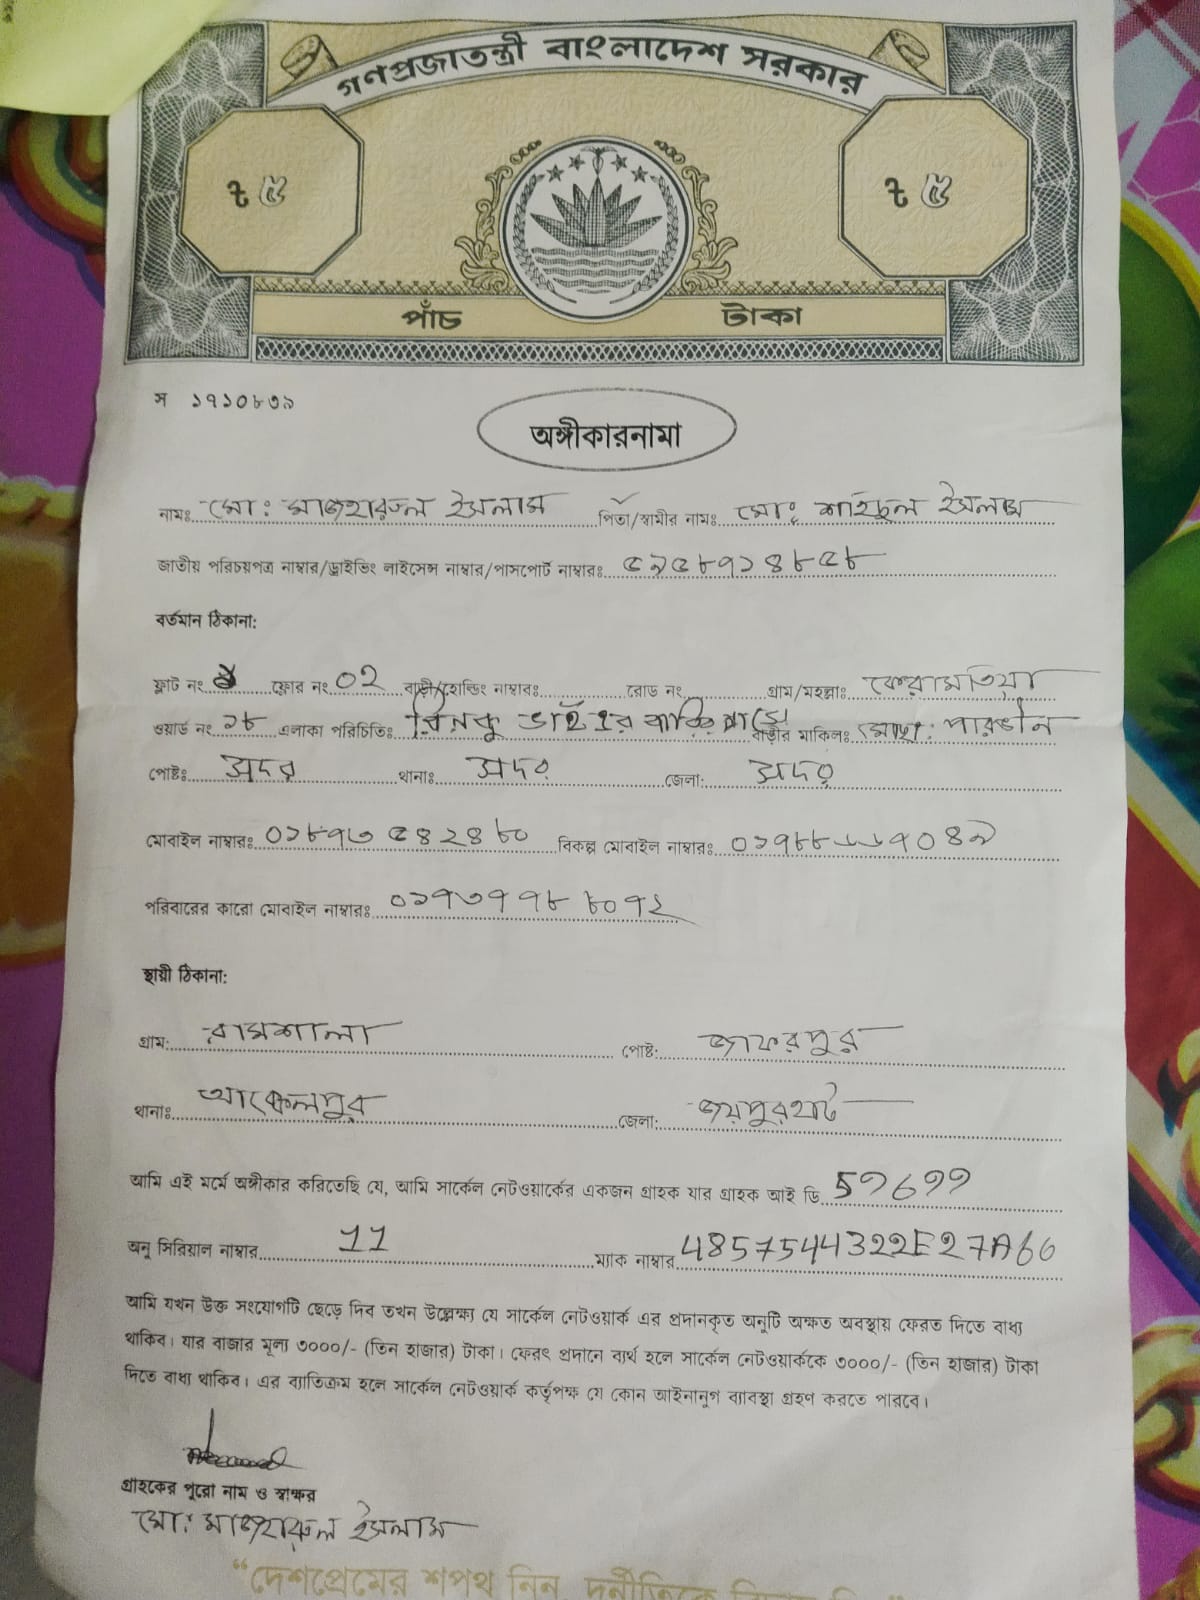 গণপ্রজাতন্ত্রী বাংলাদেশ সরকার
৳ ৫ ৳ ৫
পাঁচ টাকা
স ১৭১০৮৩৯
অঙ্গীকারনামা
নামঃ মো: মাজহারুল ইসলাম পিতা/স্বামীর নামঃ মোঃ শহিদুল ইসলাম
জাতীয় পরিচয়পত্র নাম্বার/ড্রাইভিং লাইসেন্স নাম্বার/পাসপোর্ট নাম্বারঃ ৫৯৫৮৭১৪৮৫৮
বর্তমান ঠিকানা:
ফ্লাট নং ফ্লোর নং ০২ বাড়ী/হোল্ডিং নাম্বারঃ রোড নং গ্রাম/মহল্লাঃ কেরামতিয়া
ওয়ার্ড নং ১৮ এলাকা পরিচিতিঃ রিনকু ভাই এর বাড়ির পাশে বাড়ীর মালিকঃ মোছা: পারভীন
পোষ্টঃ সদর থানাঃ সদর জেলা: সদর
মোবাইল নাম্বারঃ ০১৮৭৩৫৪২৪৮০ বিকল্প মোবাইল নাম্বারঃ
পরিবারের কারো মোবাইল নাম্বারঃ ০১৭৩৭৭৮৮০৭২
স্থায়ী ঠিকানা:
গ্রাম: রামশালা পোষ্ট: জাফরপুর
থানাঃ আক্কেলপুর জেলা: জয়পুরহাট
আমি এই মর্মে অঙ্গীকার করিতেছি যে, আমি সার্কেল নেটওয়ার্কের একজন গ্রাহক যার গ্রাহক আই ডি
অনু সিরিয়াল নাম্বার 11 ম্যাক নাম্বার 4857544322E27A66
আমি যখন উক্ত সংযোগটি ছেড়ে দিব তখন উল্লেক্ষ্য যে সার্কেল নেটওয়ার্ক এর প্রদানকৃত অনুটি অক্ষত অবস্থায় ফেরত দিতে বাধ্য
থাকিব। যার বাজার মূল্য ৩০০০/- (তিন হাজার) টাকা। ফেরৎ প্রদানে ব্যর্থ হলে সার্কেল নেটওয়ার্ককে ৩০০০/- (তিন হাজার) টাকা
দিতে বাধ্য থাকিব। এর ব্যাতিক্রম হলে সার্কেল নেটওয়ার্ক কর্তৃপক্ষ যে কোন আইনানুগ ব্যাবস্থা গ্রহণ করতে পারবে।
গ্রাহকের পুরো নাম ও স্বাক্ষর
মো: মাজহারুল ইসলাম
“দেশপ্রেমের শপথ নিন, দুর্নীতিকে